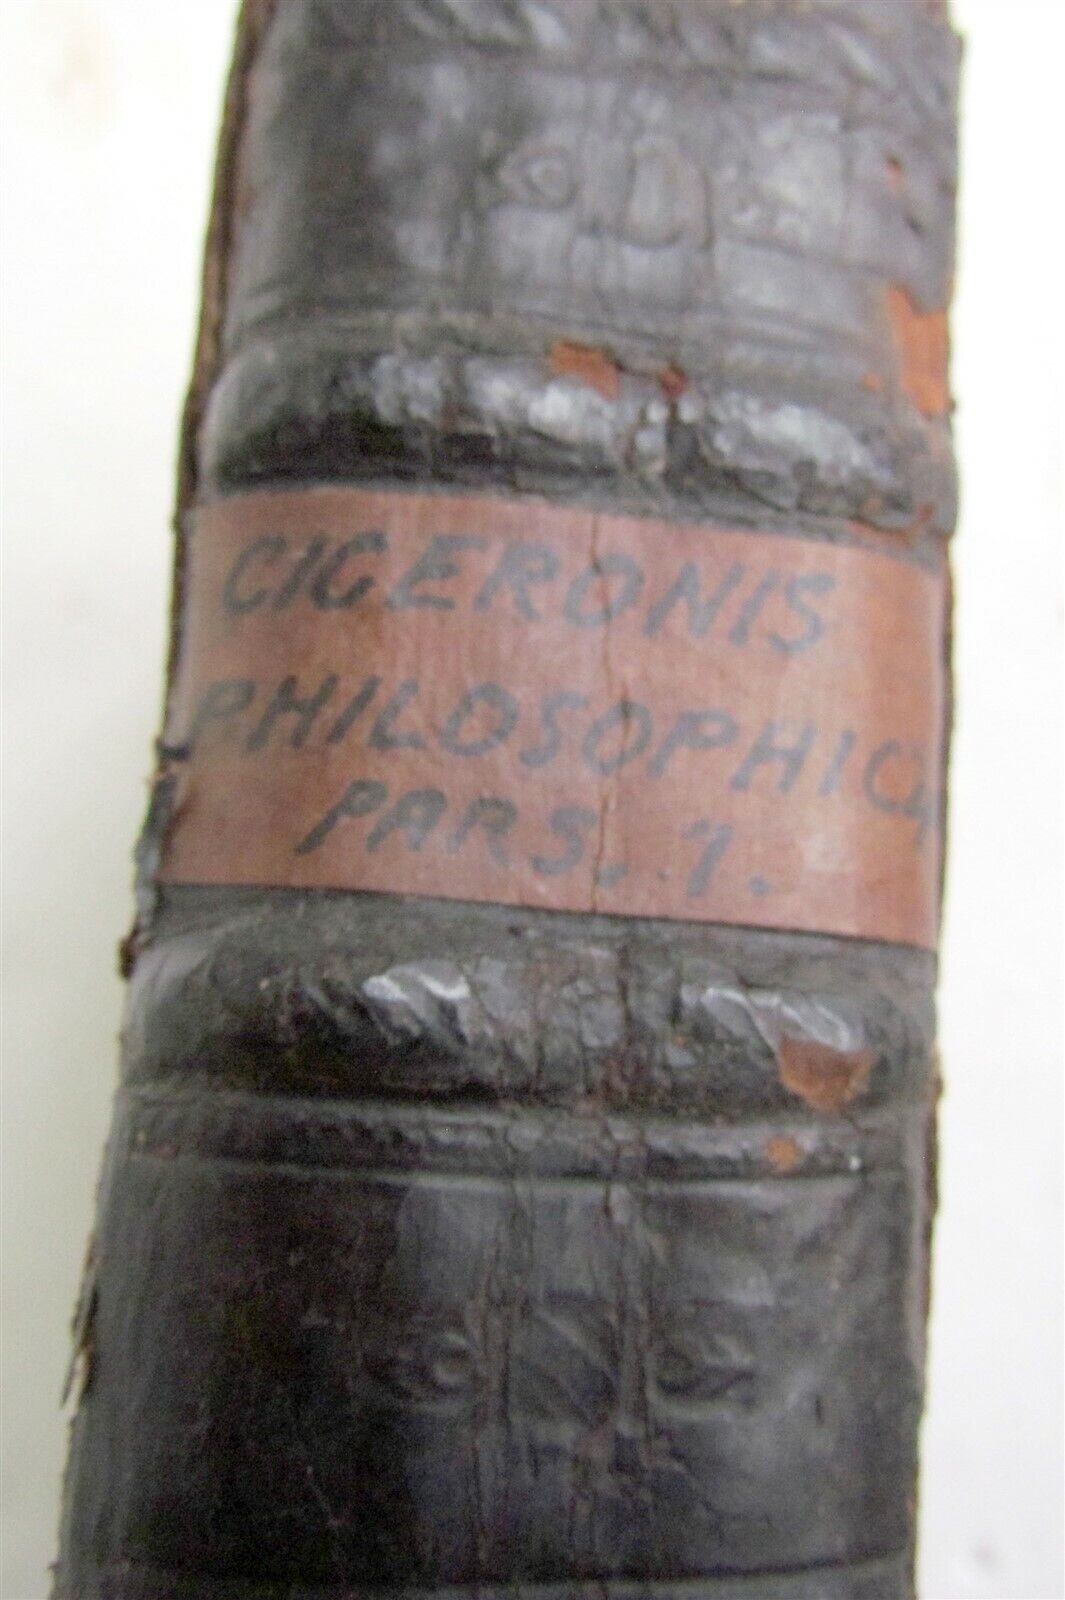 CICERONIS
PHILOSOPHICA
PARS. 1.